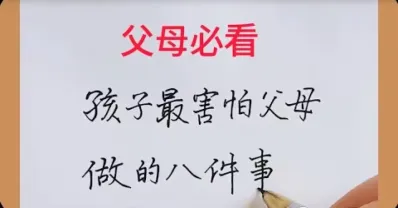 父母必看
孩子最害怕父母
做的八件事